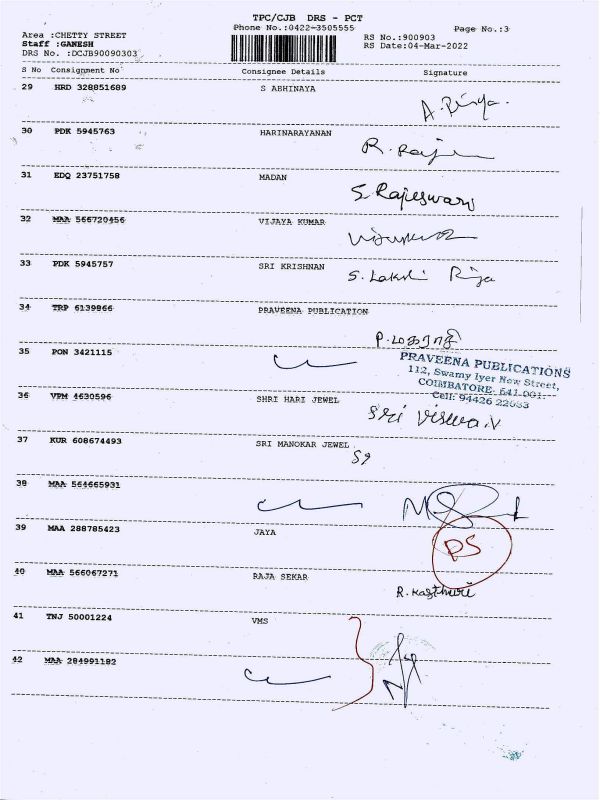 TPC/CJB DRS - PCT
Phone No.:0422-3505555
Page No.:3
Area :CHETTY STREET
Staff :GANESH
DRS No. :DCJB90090303
RS No.:900903
RS Date:04-Mar-2022
S No Consignment No Consignee Details Signature
29 HRD 328851689 S ABHINAYA
30 PDK 5945763 HARINARAYANAN
R. Raj
31 EDQ 23751758 MADAN
S. Rajeswari
32 MAA 566720456 VIJAYA KUMAR
33 PDK 5945757 SRI KRISHNAN
S. Lakshi Rija
34 TRP 6139866 PRAVEENA PUBLICATION
P. மகராசி
35 PON 3421115
PRAVEENA PUBLICATIONS
112, Swamy Iyer New Street,
COIMBATORE- 641 001.
Cell: 94426 22533
36 VPM 4630596 SHRI HARI JEWEL
Sri Viswa.V
37 KUR 608674493 SRI MANOKAR JEWEL
38 MAA 564665931
39 MAA 288785423 JAYA
PS
40 MAA 566067271 RAJA SEKAR
R. Kasthuri
41 TNJ 50001224 VMS
42 MAA 284991182